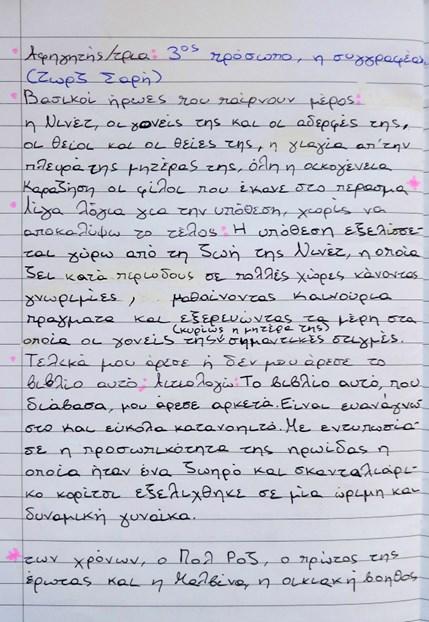 • Αφηγητής/τρια: 3ος πρόσωπο, η συγγραφέα
(Ζωρζ Σαρή)
• Βασικοί ήρωες που παίρνουν μέρος:
η Νινέτ, οι γονείς της και οι αδερφές της,
οι θείοι και οι θείες της, η γιαγιά απ'την
πλευρά της μητέρας της, όλη η οικογένεια
Καραδήση οι φίλοι που έκανε στο πέρασμα *
• Λίγα λόγια για την υπόθεση, χωρίς να
αποκαλύψω το τέλος: Η υπόθεση εξελίσσε-
ται γύρω από τη ζωή της Νινέτ, η οποία
ζει κατά περιόδους σε πολλές χώρες κάνοντας
γνωριμίες, μαθαίνοντας καινούρια
πράγματα και εξερευνώντας τα μέρη στα
(κυρίως η μητέρα της)
οποία οι γονείς της σημαντικές στιγμές.
• Τελικά μου άρεσε ή δεν μου άρεσε το
βιβλίο αυτό; Αιτιολογώ: Το βιβλίο αυτό, που
διάβασα, μου άρεσε αρκετά. Είναι ευανάγνω
στο και εύκολα κατανοητό. Με εντυπωσία-
σε η προσωπικότητα της ηρωίδας η
οποία ήταν ένα ζωηρό και σκανταλιάρι-
κο κορίτσι εξελίχθηκε σε μία ώριμη και
δυναμική γυναίκα.
* των χρόνων, ο Πολ Ροζ, ο πρώτος της
έρωτας και η Μαλβίνα, η οικιακή βοηθός